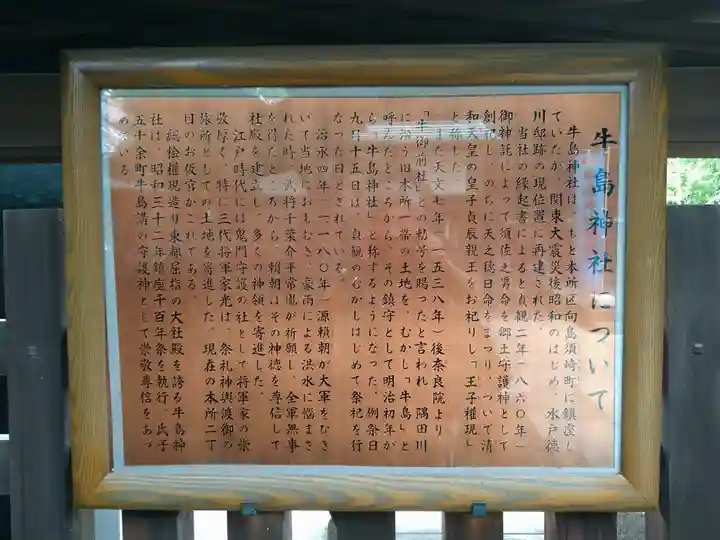 牛島神社について
牛島神社は、もと本所区向島須崎町に鎮座し
ていたが、関東大震災後昭和のはじめ、水戸徳
川邸跡の現位置に再建された。
当社の縁起書によると貞観二年(八六〇年)
御神託によって須佐之男命を郷土守護神として
創祀し、のちに天之穂日命をまつり、ついで清
和天皇の皇子貞辰親王をお祀りし「王子権現」
と称した。
また天文七年(一、五三八年)後奈良院より
「牛御前社」との勅号を賜ったと言われ、隅田川
に沿う旧本所一帯の土地を、むかし「牛島」と
呼ばれたところから、その鎮守として明治初年か
ら「牛島神社」と称するようになった。例祭日
九月十五日は、貞観のむかしはじめて祭祀を行
なった日とされている。
治承四年(一一八〇年)源頼朝が大軍をひき
いて当地におもむき、豪雨による洪水に悩まさ
れた時、武将千葉介平常胤が祈願し、全軍無事
を得たところから、頼朝はその神徳を尊信して
社殿を建立し、多くの神領を寄進した。
江戸時代には鬼門守護の社として将軍家の崇
敬厚く、特に三代将軍家光は、祭礼神輿渡御の
旅所としての土地を寄進した。現在の本所二丁
目のお仮宮がこれである。
総桧権現造り東都屈指の大社殿を誇る牛島神
社は、昭和三十二年鎮座千百年祭を執行、氏子
五十余町牛島講の守護神として崇敬尊信をあつ
めている